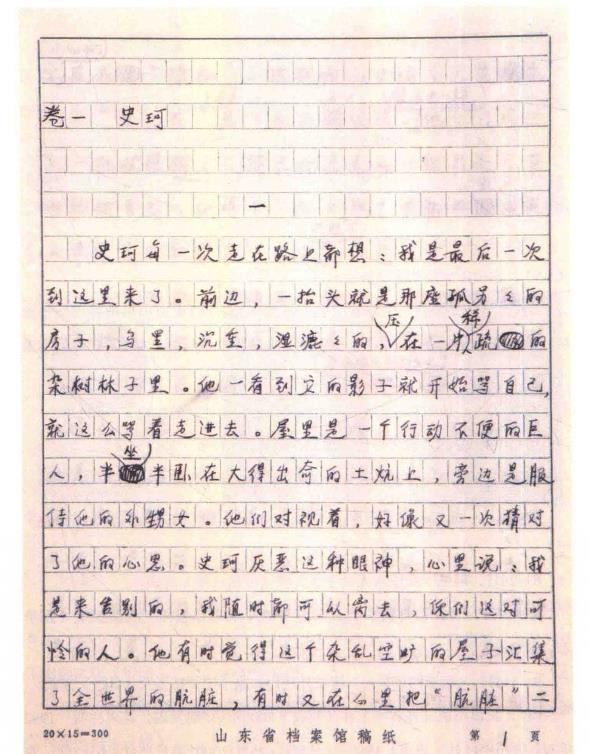 卷一 史珂
一
史珂每一次走在路上都想：我是最后一次
到这里来了。前边，一抬头就是那座孤另々的
房子，乌黑，沉重，湿漉々的，压在一片稀疏的
杂树林子里。他一看到它的影子就开始骂自己，
就这么骂着走进去。屋里是一个行动不便的巨
人，半坐半卧在大得出奇的土炕上，旁边是服
侍他的外甥女。他们对视着，好像又一次猜对
了他的心思。史珂厌恶这种眼神，心里说：我
是来告别的，我随时都可以离去，你们这对可
怜的人。他有时觉得这个杂乱空旷的屋子汇集
了全世界的肮脏，有时又在心里把“肮脏”二
20×15=300 山东省档案馆稿纸 第1页